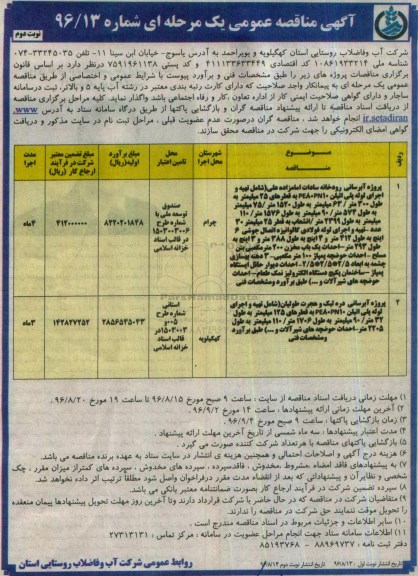 آگهی مناقصه عمومی یک مرحله ای شماره ۹۶/۱۳
نوبت دوم
شرکت آب وفاضلاب روستایی استان کهگیلویه و بویراحمد به آدرس یاسوج- خیابان ابن سینا ۱۱- تلفن ۰۳۵-۳۳۳۴۵-۰۷۴
شناسه ملی ۱۰۸۶۱۹۳۳۲۱۴ کد اقتصادی ۴۱۱۱۳۳۶۳۳۴۴۹ و کد پستی ۷۵۹۱۹۶۱۱۳۸ درنظر دارد بر اساس قانون
برگزاری مناقصات پروژه های زیر را طبق مشخصات فنی و برآورد پیوست با شرایط عمومی و اختصاصی از طریق مناقصه
عمومی یک مرحله ای به پیمانکار واجد صلاحیت که دارای کارت رتبه بندی معتبر در رشته آب پایه ۵ و بالاتر، ثبت درسامانه
ساجار و دارای گواهی صلاحیت ایمنی کار از اداره تعاون ،کار و رفاه اجتماعی باشد واگذار نماید. کلیه مراحل برگزاری مناقصه
از دریافت اسناد مناقصه تا ارائه پیشنهاد مناقصه گران و بازگشایی پاکتها از طریق درگاه سامانه ستاد به آدرس www.
setadiran.ir انجام خواهد شد . مناقصه گران درصورت عدم عضویت قبلی ، مراحل ثبت نام در سایت مذکور و دریافت
گواهی امضای الکترونیکی را جهت شرکت در مناقصه محقق سازند.
ردیف
موضوع مناقصه
شهرستان محل اجرا
محل تامین اعتبار
مبلغ برآورد اولیه(ریال)
مبلغ تضمین معتبر شرکت در فرآیند ارجاع کار (ریال)
مدت اجرا
۱
پروژه آبرسانی رودخانه سادات امامزاده علی(شامل تهیه و
اجرای لوله پلی اتیلن PE80PN10 به قطر های ۲۵ میلیمتر به
طول ۳۰۰ متر / ۶۳ میلیمتر به طول ۱۵۳۰ متر / ۷۵ میلیمتر
به طول ۵۷۳ متر / ۹۰ میلیمتر به طول ۱۵۷۶ متر / ۱۱۰
عدد -تهیه و اجرای لوله فولادی گالوانیزه اتصال جوشی ۶
چرام
صندوق توسعه ملی با شماره طرح ۱۵۰۳۰۰۳۰۰۶ در قالب اسناد خزانه اسلامی
۸۲۲۰۲۰۱۸۴۸
۴۱۲۰۰۰۰۰۰
۴ماه
پروژه آبرسانی دره لیک و هجرت خلوئیان(شامل تهیه و اجرای
لوله پلی اتیلن PE80PN10 به قطر های ۱۲۵ میلیمتر به طول
۲۲۰۵ متر-احداث حوضچه های شیرآلات و ....) طبق برآورد
ومشخصات فنی
کهکیلویه
استانی شماره طرح
قالب اسناد خزانه اسلامی
۲۸۵۶۵۳۵۰۳۳
۱۴۲۸۲۷۲۵۲
۳ماه
۱) مهلت زمانی دریافت اسناد مناقصه از سایت : ساعت ۹ صبح مورخ ۹۶/۸/۱۵ تا ساعت ۱۹ مورخ ۹۶/۸/۲۰.
۲) آخرین مهلت زمانی ارائه پیشنهادها : ساعت ۱۴ مورخ ۹۶/۹/۲
۳) زمان بازگشایی پاکتها : ساعت ۹ صبح مورخ ۹۶/۹/۴
۴) مدت اعتبار پیشنهادها : سه ماه شمسی از تاریخ آخرین مهلت ارائه پیشنهاد .
۵) بازگشایی پاکتهای مناقصه با هرتعداد شرکت کننده صورت می گیرد .
۶) هزینه درج آگهی و اصلاحات احتمالی و همچنین هزینه ی انتشار در سایت ستاد به عهده برنده مناقصه می باشد.
۷) به پیشنهادهای فاقد امضاء ،مشروط ،مخدوش ، فاقدسپرده ، سپرده های مخدوش ، سپرده های کمتراز میزان مقرر ، چک
شخصی و نظایرآن و پیشنهاداتی که بعد از انقضاء مدت مقرر درفراخوان واصل شود مطلقاً ترتیب اثر داده نخواهد شد.
۸) سپرده تضمین شرکت در فرآیند ارجاع کار بصورت ضمانتنامه معتبر بانکی می باشد.
۹) متقاضیان شرکت در مناقصه که در حال حاضر با شرکت قرارداد دارند وتا آخرین روز مهلت تحویل پیشنهادها پیمان منعقده
را تحویل موقت ننمایند حق شرکت در مناقصه را ندارند.
۱۰) سایر اطلاعات و جزئیات مربوط در اسناد مناقصه مندرج است .
۱۱) اطلاعات سامانه ستاد جهت انجام مراحل عضویت در سامانه : مرکز تماس : ۲۷۳۱۳۱۳۱
دفتر ثبت نامه : ۸۸۹۶۹۷۳۷ - ۸۵۱۹۳۷۶۸
تاریخ انتشار نوبت اول : ۹۶/۸/۱۳ تاریخ انتشار نوبت دوم ۹۶/۸/۱۴
روابط عمومی شرکت آب وفاضلاب روستایی استان